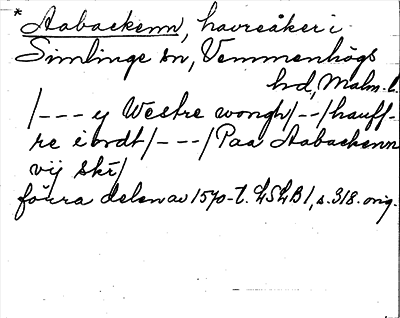 * Aabackenn, havreåker i
Simlinge sn, Vemmenhögs
hd, Malm. l.
/--- y Westre wongh/--/hauff-
re iordt/---/Paa Aabackenn
vij skr/
förra delen av 1570-t. LSLB 1, s. 318. orig.